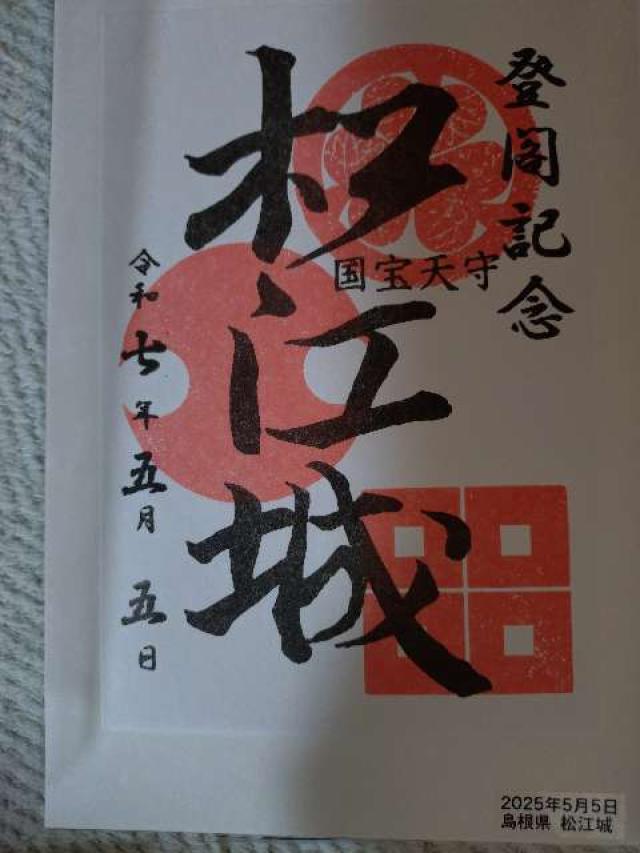 登閣記念
国宝天守
松江城
令和七年五月五日
2025年5月5日
島根県 松江城